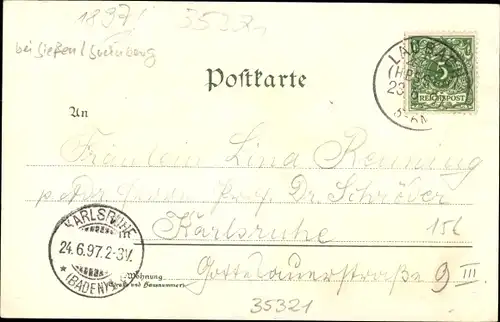 1897
35321
bei Gießen / Grünberg
Postkarte
LAUBACH
5
REICHSPOST
23
An
Fräulein Lina Renning
p. Adr. Prof. Dr. Schröder
Karlsruhe
156
KARLSRUHE
24.6.97.2-3V.
(BADEN)
Wohnung
(Straße und Hausnummer)
Gottesauerstraße 9 III.
35321